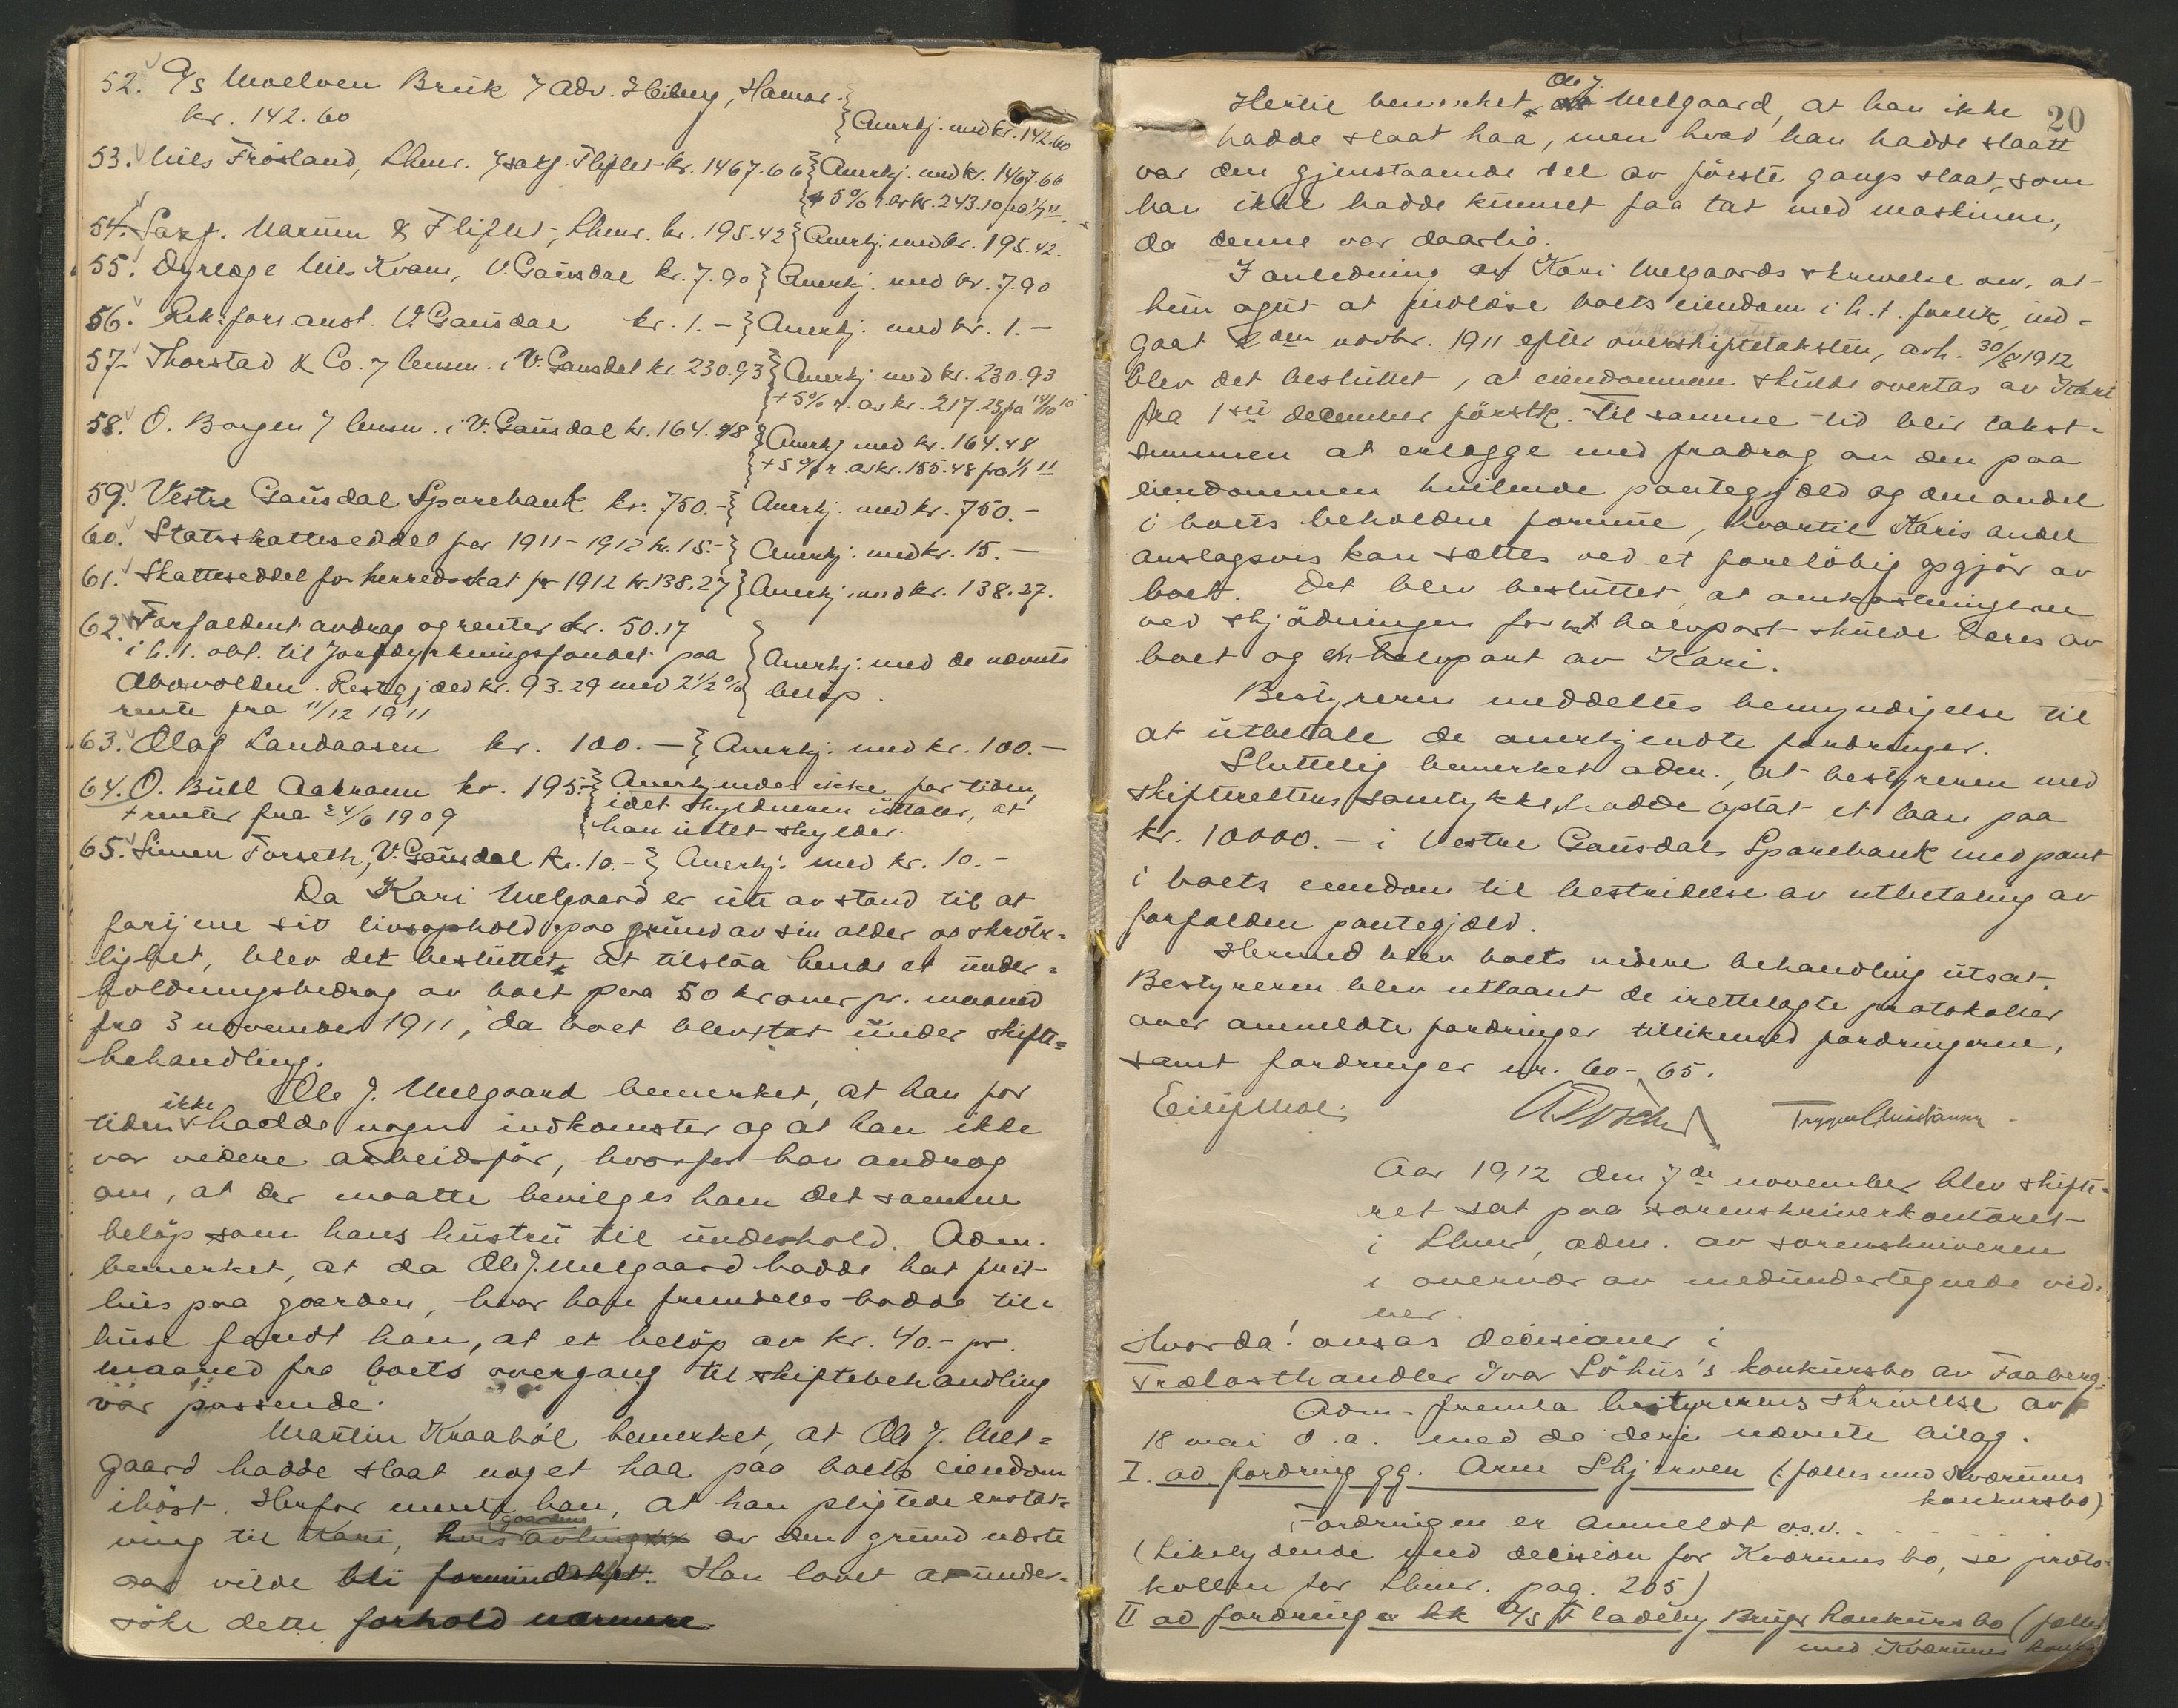 52. A/S Moelven Bruk / Adv. Heiberg, Hamar.
kr. 142.60 } Anerkj. med kr. 142.60
53. Nils Frösland, Lhmr. / sakf. Fliflet kr. 1467.66 } Anerkj. med kr. 1467.66
+ 5% r. av kr. 243.10 fra 1/7 11.
54. Sakf. Narum & Fliflet, Lhmr. kr. 195.42 } Anerkj. med kr. 195.42.
55. Dyrlæge Nils Kvam, V. Gausdal kr. 7.90 } Anerkj. med kr. 7.90
56. Rek. fors. anst. V. Gausdal kr. 1.- } Anerkj. med kr. 1.-
57. Thorstad & Co. / lensm. i V. Gausdal kr. 230.93 } Anerkj. med kr. 230.93
+ 5% r. av kr. 217.23 fra 14/10 10
58. O. Borgen / lensm. i V. Gausdal kr. 164.48 } Anerkj med kr. 164.48
+ 5% r. av kr. 155.48 fra 1/1 11
59. Vestre Gausdal Sparebank kr. 750.- } Anerkj. med kr. 750.-
60. Statsskatteseddel for 1911-1912 kr. 15.- } Anerkj. med kr. 15.-
61. Skatteseddel for herredsskat for 1912 kr. 138.27 } Anerkj. med kr. 138.27.
62. Forfaldent avdrag og renter kr. 50.17
i h.t. obl. til Jorddyrkningsfondet paa } Anerkj. med de nævnte
Abovolden. Restgjæld kr. 93.29 med 2 1/2 % } beløp.
rente fra 11/12 1911
63. Olaf Landaasen kr. 100.- } Anerkj. med kr. 100.-
64. O. Bull Aakrann kr. 195.- } Anerkjendes ikke for tiden,
+ renter fra 24/6 1909 } idet skyldneren uttaler, at
han intet skylder.
65. Simen Forseth, V. Gausdal kr. 10.- } Anerkj. med kr. 10.-
Da Kari Melgaard er ute av stand til at
fortjene sit livsophold paa grund av sin alder og skröbe-
lighet, blev det besluttet at tilstaa hende et under-
holdningsbidrag av boet paa 50 kroner pr. maaned
fra 3 november 1911, da boet blev tat under skifte-
behandling.
Ole J. Melgaard bemerket, at han for
tiden ikke hadde nogen indkomster og at han ikke
var videre arbeidsfør, hvorfor han androg
om, at der maatte bevilges ham det samme
beløp som hans hustru til underhold. Adm.
bemerket, at da Ole J. Melgaard hadde hat frit
hus paa gaarden, hvor han fremdeles hadde til-
huse fandt han, at et beløp av kr. 40.- pr.
maaned fra boets overgang til skiftebehandling
var passende.
Martin Kraaböl bemerket, at Ole J. Mel-
gaard hadde slaat noget haa paa boets eiendom
ihöst. Herfor mente han, at han pligtede erstat-
ning til Kari, hvis gaardens avling av den grund næste
aar vilde bli formindsket. Han lovet at under-
söke dette forhold nærmere.
20
Hertil bemerket Ole J. Melgaard, at han ikke
hadde slaat haa, men hvad han hadde slaatt
var den gjenstaaende del av förste gangs slaat, som
han ikke hadde kunnet faa tat med maskinen,
da denne var daarlig.
I anledning av Kari Melgaards skrivelse om, at
hun agtet at indlöse boets eiendom i h.t. forlik, ind-
gaat 2den novbr. 1911 efter overskiftetaksten, avh. 30/8 1912
blev det besluttet, at eiendommen skulde overtas av Kari
fra 1ste december förstk. Til samme tid blir takst-
summen at erlægge med fradrag av den paa
eiendommen hvilende pantegjæld og den andel
i boets beholdne formue, hvortil Karis andel
anslagsvis kan sættes ved et foreløbig opgjör av
boet. Det blev besluttet, at omkostningerne
ved skjödningen for en halvpart skulde bæres av
boet og en halvpart av Kari.
Bestyreren meddeltes bemyndigelse til
at utbetale de anerkjendte fordringer.
Sluttelig bemerket adm., at bestyreren med
skifterettens samtykke hadde optat et laan paa
kr. 10000.- i Vestre Gausdals Sparebank med pant
i boets eiendom til bestridelse av utbetaling av
forfalden pantegjæld.
Hermed blev boets videre behandling utsat.
Bestyreren blev utlaant de irettelagte protokoller
over anmeldte fordringer tillikemed fordringerne,
samt fordringer nr. 60-65.
Eilif Moe. Trygve Christiansen
Aar 1912 den 7de november blev skifte-
ret sat paa sorenskriverkontoret
i Lhmr, adm. av sorenskriveren
i overvær av medundertegnede vid-
ner.
Hvorda! avsas decisioner i
Trælasthandler Ivar Löhus's konkursbo av Faaberg.
Adm. fremla bestyrerens skrivelse av
18 mai d.a. med de deri nævnte bilag.
I. ad fordring gg. Arne Skjerven (: fælles med Kværums
konkursbo).
Fordringen er anmeldt o.s.v. . . . .
(Likelydende med decision for Kværums bo, se proto-
kollen for Lhmr. pag. 205)
II ad fordring kk A/S Fladeby Brugs konkursbo (fælles
med Kværums konk.